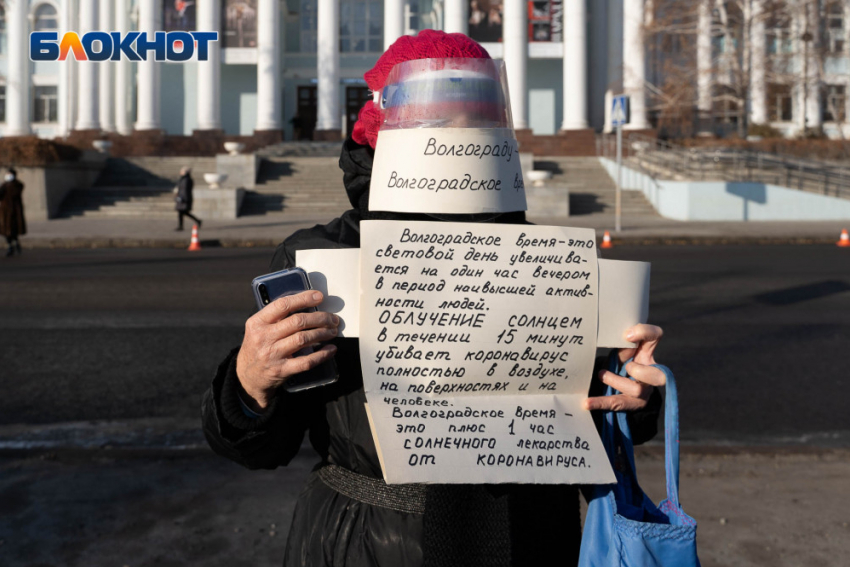 БЛОКНОТ
Волгограду -
Волгоградское вре
Волгоградское время-это
световой день увеличива-
ется на один час вечером
в период наивысшей актив-
ности людей.
ОБЛУЧЕНИЕ СОЛНЦЕМ
в течении 15 минут
убивает коронавирус
полностью в воздухе,
на поверхностях и на
человеке.
Волгоградское Время -
это плюс 1 час
солнечного лекарства
от КОРОНАВИРУСА.